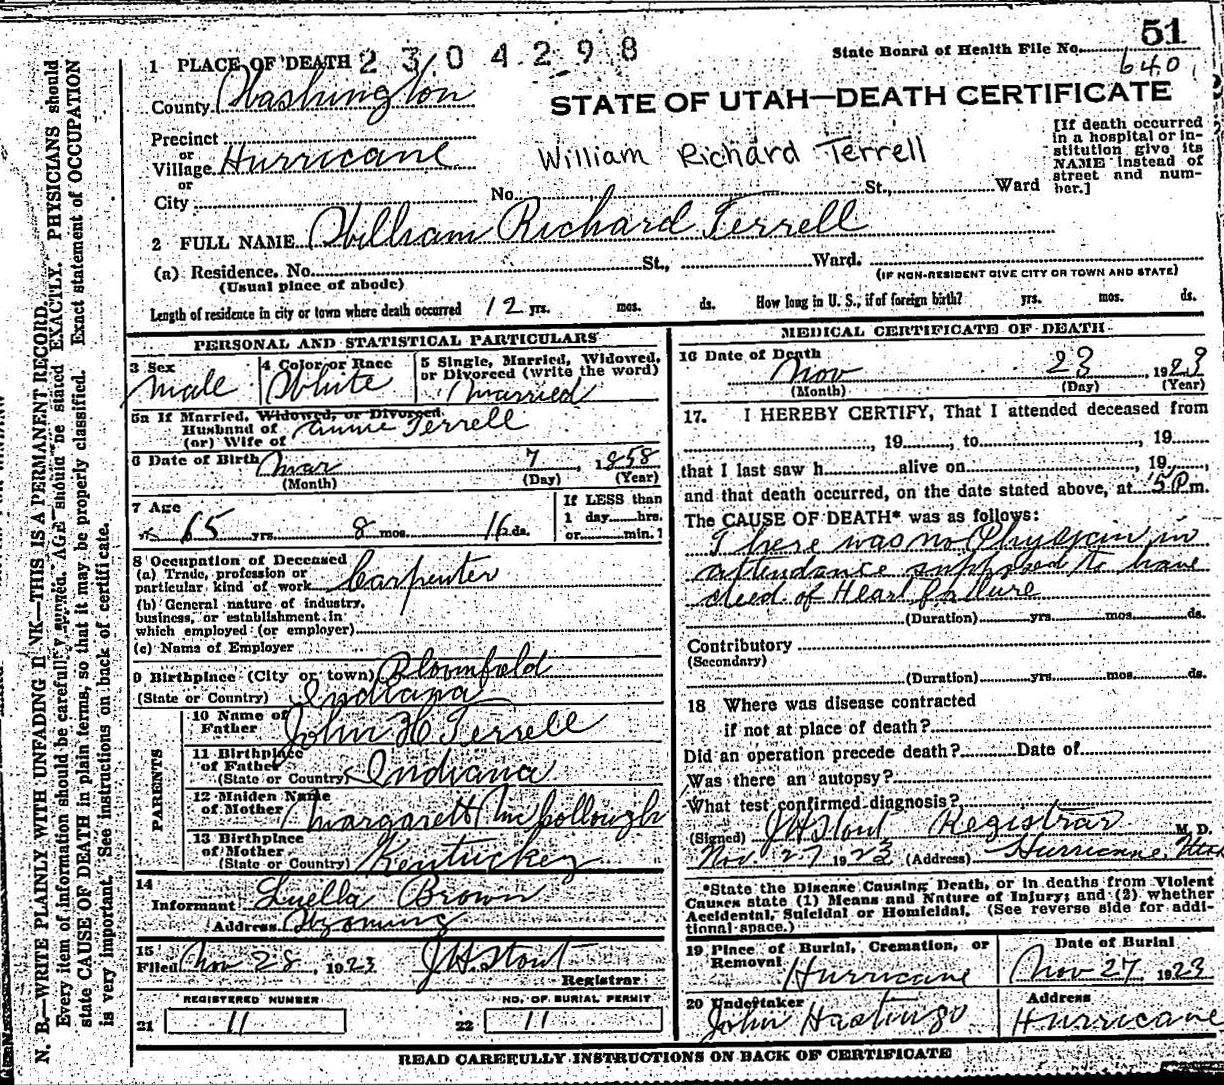 51
State Board of Health File No.
640
1 PLACE OF DEATH 2304298
County Washington
STATE OF UTAH—DEATH CERTIFICATE
Precinct
or
Village Hurricane
or
City
William Richard Terrell
No. St., Ward
[If death occurred
in a hospital or in-
stitution give its
NAME instead of
street and num-
ber.]
2 FULL NAME William Richard Terrell
(a) Residence. No. St., Ward.
(Usual place of abode)
(IF NON-RESIDENT GIVE CITY OR TOWN AND STATE)
Length of residence in city or town where death occurred 12 yrs. mos. ds. How long in U. S., if of foreign birth? yrs. mos. ds.
PERSONAL AND STATISTICAL PARTICULARS
3 Sex
Male
4 Color or Race
White
5 Single, Married, Widowed,
or Divorced (write the word)
Married
5a If Married, Widowed, or Divorced
Husband of
(or) Wife of Annie Terrell
6 Date of Birth Mar 7, 1858
(Month) (Day) (Year)
7 Age
65 yrs. 8 mos. 16 ds.
If LESS than
1 day hrs.
or min.?
8 Occupation of Deceased
(a) Trade, profession or
particular kind of work Carpenter
(b) General nature of industry,
business, or establishment in
which employed (or employer)
(c) Name of Employer
9 Birthplace (City or town) Bloomfield
(State or Country) Indiana
PARENTS
10 Name of
Father John H Terrell
11 Birthplace
of Father
(State or Country) Indiana
12 Maiden Name
of Mother Margarett McCollough
13 Birthplace
of Mother
(State or Country) Kentuckey
14
Informant Luella Brown
Address Wyoming
15
Filed Nov 28, 1923 J H Stout
Registrar
REGISTERED NUMBER
21 11
NO. OF BURIAL PERMIT
22 11
MEDICAL CERTIFICATE OF DEATH
16 Date of Death
Nov 23, 1923
(Month) (Day) (Year)
17. I HEREBY CERTIFY, That I attended deceased from
, 19 , to , 19
that I last saw h alive on , 19 ,
and that death occurred, on the date stated above, at 5 P m.
The CAUSE OF DEATH* was as follows:
There was no Physician in
attendance supposed to have
died of Heart failure
(Duration) yrs. mos. ds.
Contributory
(Secondary)
(Duration) yrs. mos. ds.
18 Where was disease contracted
if not at place of death?
Did an operation precede death? Date of
Was there an autopsy?
What test confirmed diagnosis?
(Signed) J H Stout Registrar M. D.
Nov 27 1923 (Address) Hurricane, Utah
*State the Disease Causing Death, or in deaths from Violent
Causes state (1) Means and Nature of Injury; and (2) whether
Accidental, Suicidal or Homicidal. (See reverse side for addi-
tional space.)
19 Place of Burial, Cremation, or
Removal
Hurricane
Date of Burial
Nov 27 1923
20 Undertaker
John Hastings
Address
Hurricane
READ CAREFULLY INSTRUCTIONS ON BACK OF CERTIFICATE
N. B.—WRITE PLAINLY WITH UNFADING INK—THIS IS A PERMANENT RECORD.
Every item of information should be carefully supplied. AGE should be stated EXACTLY. PHYSICIANS should
state CAUSE OF DEATH in plain terms, so that it may be properly classified. Exact statement of OCCUPATION
is very important. See instructions on back of certificate.